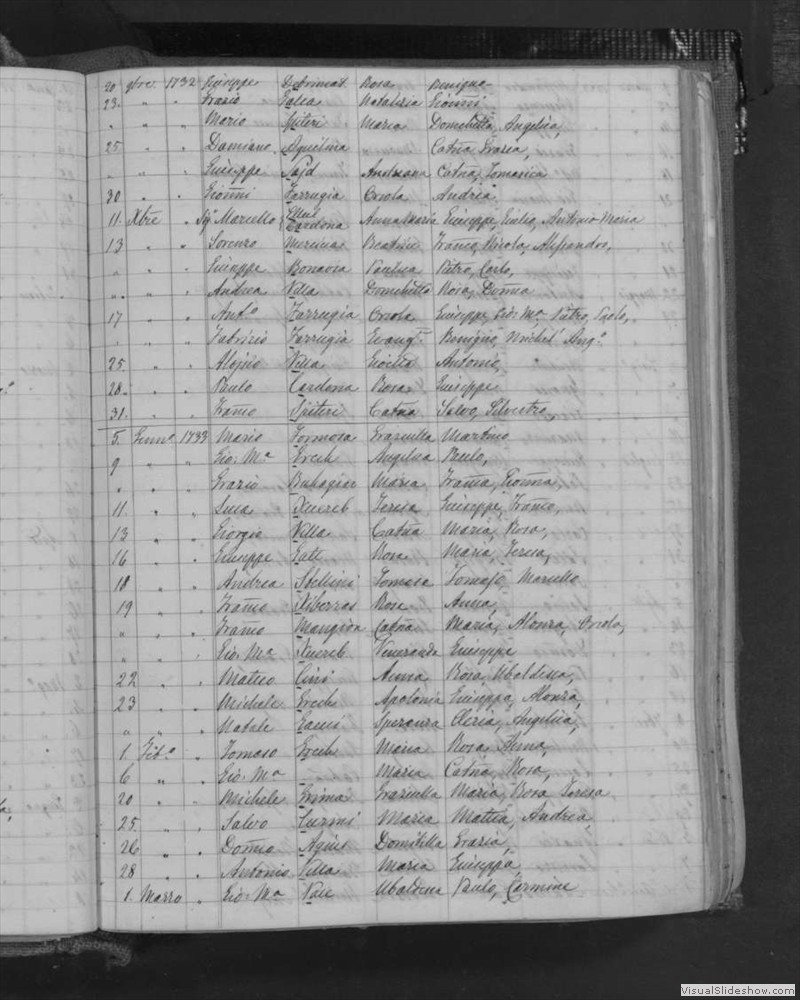 20 9bre 1732 Giuseppe Debrincat Rosa Benigna
23. " " Grazio Galea Natalizia Gionni
" " " Mario Spiteri Maria Domitilla, Angelica,
25 " " Damiano Aquilina Catña Grazia,
" " " Giuseppe Sajd Andreana Catña, Tomasica
30 " " Gionñi Farrugia Orsola Andria
11. Xbre " Sigr Marcello Mel Cardona Annamaria Giuseppe, Giulio, Antonio Maria
13 " " Lorenzo Mercieca Beatrice Franco, Nicola, Alessandro,
" " " Giuseppe Bonavia Paulica Pietro, Carlo,
" " " Andrea Villa Domitilla Rosa, Domca
17 " " Anto Farrugia Orsola Giuseppe, Gio: Ma Pietro, Paolo,
" " " Fabrizio Farrugia Evangta Benigno, Michel' Ango
25 " " Aloisio Villa Gioella Antonio,
28. " " Paulo Cardona Rosa Giuseppe
31. " " Franco Spiteri Catña Salvo, Silvestro,
5. Genno 1733 Mario Formosa Graziulla Martino
9 " " Gio: Ma Grech Angelica Paulo,
" " " Grazio Buhagiar Maria Franca, Gioñna,
11. " " Luca Xuereb Teresa Giuseppe, Franco,
13 " " Giorgio Villa Catña Maria, Rosa,
16 " " Giuseppe Gatt Rosa Maria, Teresa,
18 " " Andrea Stellini Tomasa Tomaso, Marcello
19 " " Franco Xiberras Rosa Anna,
" " " Franco Mangion Catña Maria, Alonza, Orsola,
" " " Gio: Ma Xuereb Veneranda Giuseppe
22 " " Matteo Cini Anna Rosa, Ubaldesca,
23 " " Michele Grech Apolonia Giuseppa, Alonza,
" " " Natale Gauci Speranza Cleria, Angelica,
1. Fibo " Tomaso Grech Maria Rosa, Anna,
6 " " Gio: Ma Maria Catña, Rosa,
20 " " Michele Grima Graziulla Maria, Rosa, Teresa
25. " " Salvo Curmi Maria Mattia, Andrea,
26 " " Domco Agius Domitilla Grazia,
28 " " Antonio Villa Maria Giuseppa,
1. Marzo " Gio: Ma Pace Ubaldesca Paulo, Carmine
VisualSlideshow.com